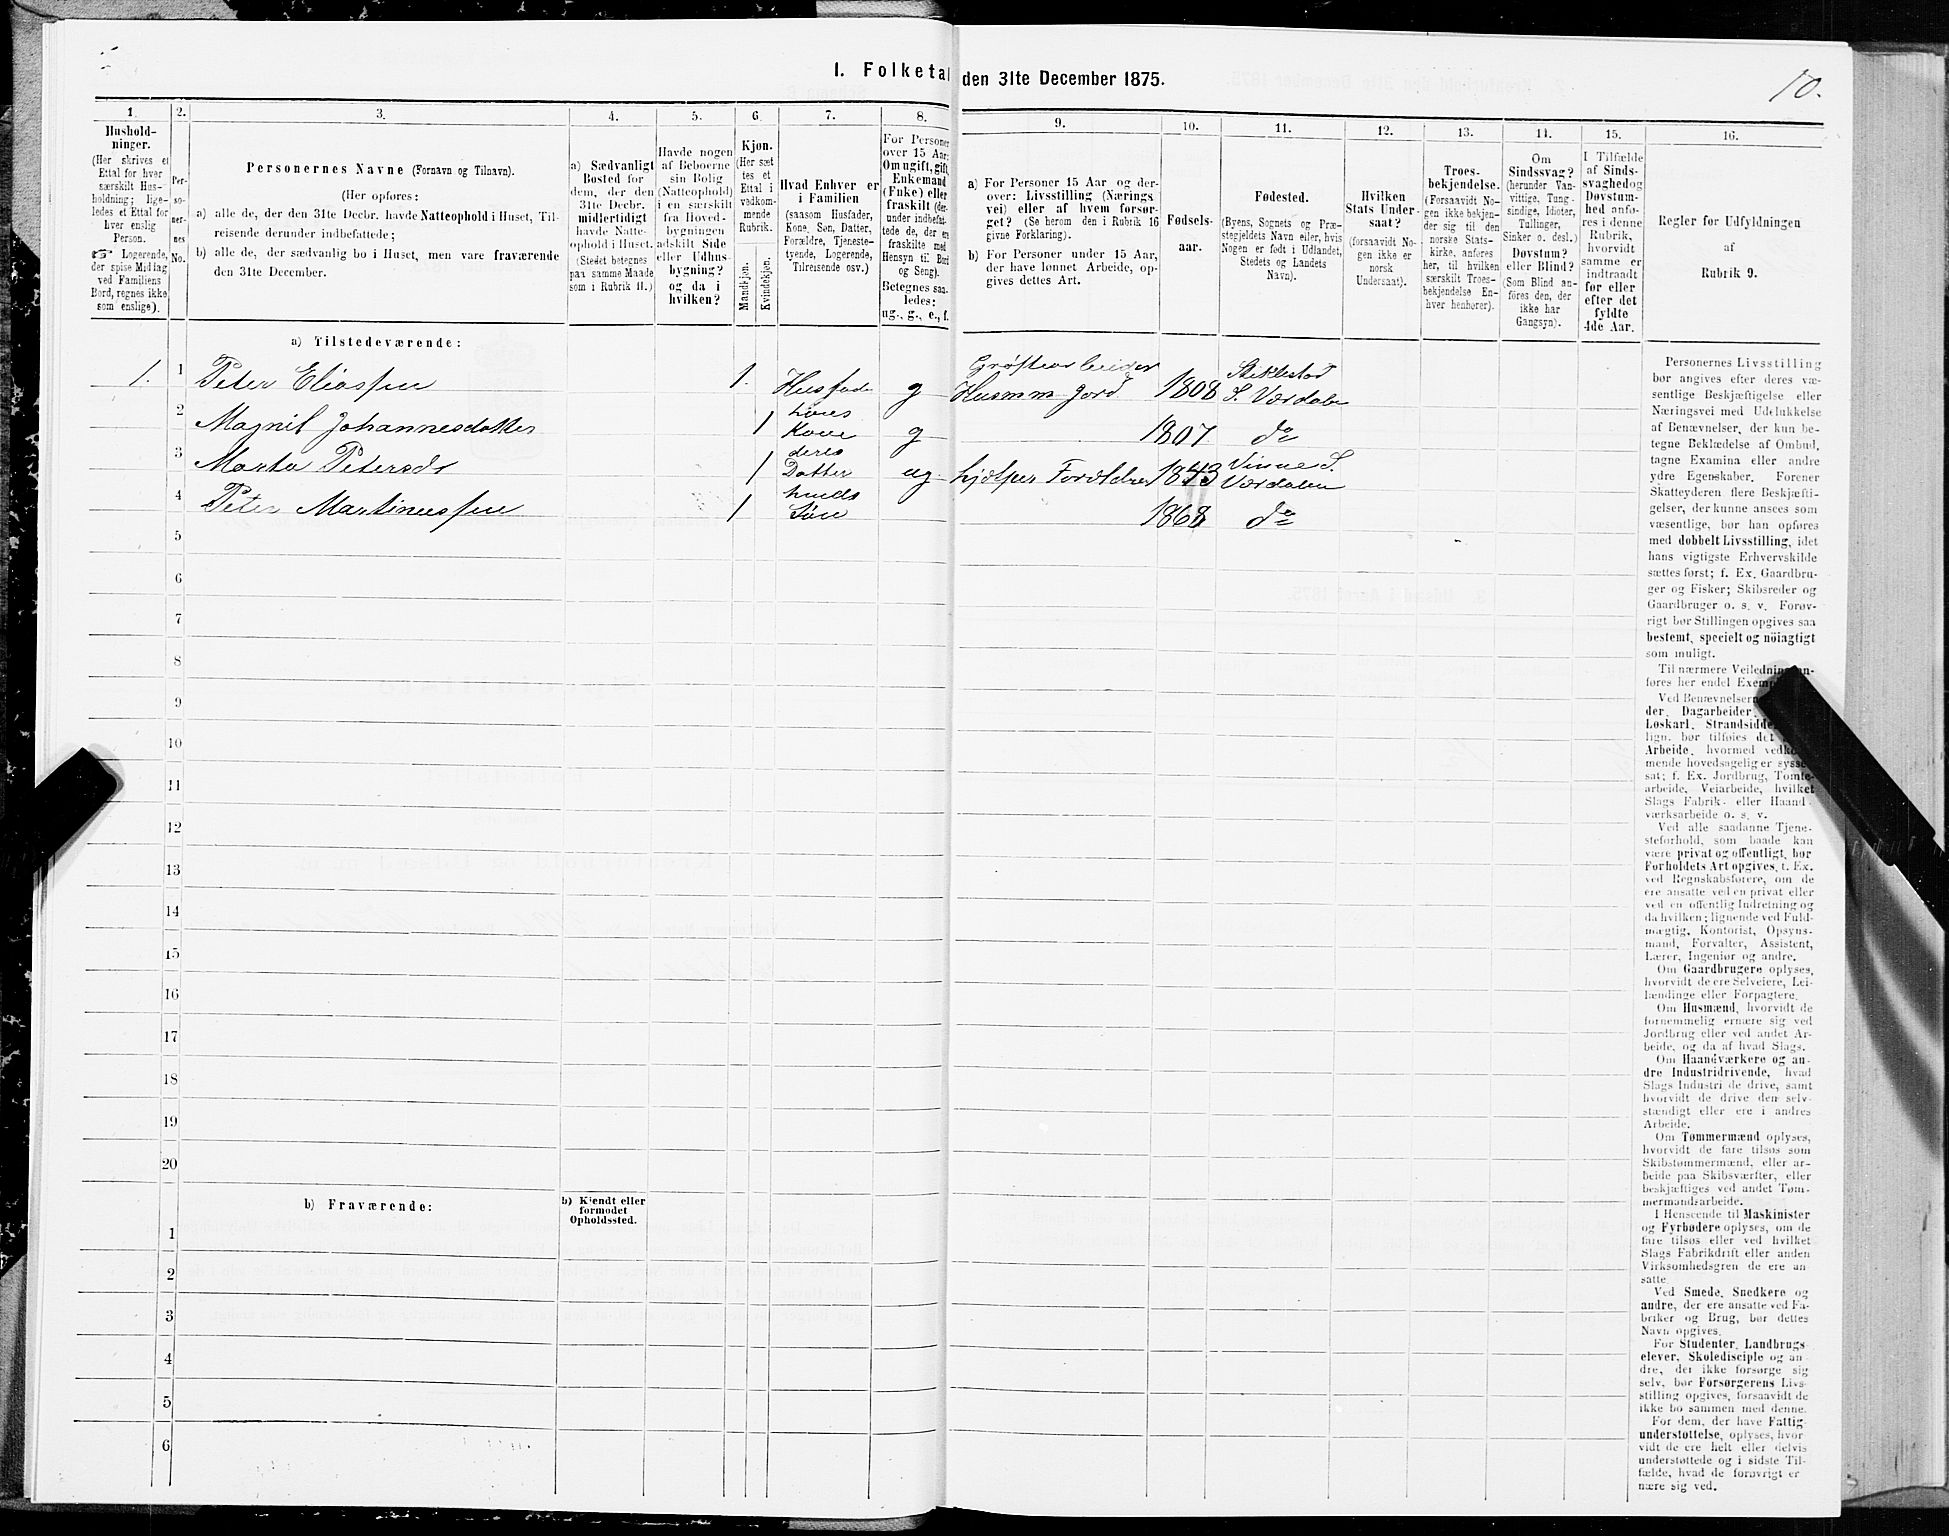 I. Folketal den 31te December 1875.
10.
1.
Hushold-
ninger.
(Her skrives et
Ettal for hver
særskilt Hus-
holdning; lige-
ledes et Ettal for
hver enslig
Person.
☞ Logerende,
der spise Middag
ved Familiens
Bord, regnes ikke
som enslige).
2.
Per-
so-
ner-
nes
No.
3.
Personernes Navne (Fornavn og Tilnavn).
(Her opføres:
a) alle de, der den 31te Decbr. havde Natteophold i Huset, Til-
reisende derunder indbefattede;
b) alle de, der sædvanlig bo i Huset, men vare fraværende
den 31te December.
4.
a) Sædvanligt
Bosted for
dem, der den
31te Decbr.
midlertidigt
havde Natte-
ophold i Huset.
(Stedet betegnes
paa samme Maade
som i Rubrik 11.)
5.
Havde nogen
af Beboerne
sin Bolig
(Natteophold)
i en særskilt
fra Hoved-
bygningen
adskilt Side
eller Udhus-
bygning?
og da i
hvilken?
6.
Kjøn.
(Her sæt
tes et
Ettal i
vedkom-
mende
Rubrik.
Mandkjøn.
Kvindekjøn.
7.
Hvad Enhver er
i Familien
(saasom Husfader,
Kone, Søn, Datter,
Forældre, Tjeneste-
tyende, Logerende,
Tilreisende osv.)
8.
For Personer
over 15 Aar:
Om ugift, gift,
Enkemand
(Enke) eller
fraskilt (der-
under indbefat-
tede de, der ere
fraskilte med
Hensyn til Bord
og Seng).
Betegnes saa-
ledes:
ug., g., e., f.
9.
a) For Personer 15 Aar og der-
over: Livsstilling (Nærings
vei) eller af hvem forsør-
get? (Se herom den i Rubrik 16
givne Forklaring).
b) For Personer under 15 Aar,
der have lønnet Arbeide, op-
gives dettes Art.
10.
Fødsels-
aar.
11.
Fødested.
(Byens, Sognets og Præ-
stegjeldets Navn eller, hvis
Nogen er født i Udlandet,
Stedets og Landets
Navn).
12.
Hvilken
Stats Under-
saat?
(forsaavidt No-
gen ikke er
norsk
Undersaat).
13.
Troes-
bekjendelse.
(Forsaavidt No-
gen ikke bekjen-
der sig til den
norske Stats-
kirke, anføres
her, til hvilken
særskilt Troes-
bekjendelse En-
hver henhører).
14.
Om
Sindssvag?
(herunder Van-
vittige, Tung-
sindige, Idioter,
Tullinger,
Sinker o. desl.)
Døvstum?
eller Blind?
(Som Blind an-
føres den, der
ikke har
Gangsyn).
15.
I Tilfælde
af Sinds-
svaghed og
Døvstum-
hed anfø-
res i denne
Rubrik,
hvorvidt
samme er
indtraadt
før eller
efter det
fyldte
4de Aar.
16.
Regler for Udfyldningen
af
Rubrik 9.
a) Tilstedeværende:
1. 1 Peter Eliassen 1. Husfader g Grøftearbeider Husmm Jord 1808 Stiklestad S. Værdalen
2 Magnil Johannesdatter 1 hans Kone g 1807 do
3 Marta Petersdr 1 deres Datter ug hjælper Forældre 1843 Vinne S. Værdalen
4 Peter Martinussen 1 hends Søn 1868 do
5
6
7
8
9
10
11
12
13
14
15
16
17
18
19
20
b) Fraværende:
b) Kjendt eller
formodet
Opholdssted.
1
2
3
4
5
6
Personernes Livsstilling
bør angives efter deres væ-
sentlige Beskjæftigelse eller
Næringsvei med Udelukkelse
af Benævnelser, der kun be-
tegne Beklædelse af Ombud,
tagne Examina eller andre
ydre Egenskaber. Forener
Skatteyderen flere Beskjæfti-
gelser, der kunne ansees som
væsentlige, bør han opføres
med dobbelt Livsstilling, idet
hans vigtigste Erhvervskilde
sættes først; f. Ex. Gaardbru-
ger og Fisker; Skibsreder og
Gaardbruger o. s. v. Forøv-
rigt bør Stillingen opgives saa
bestemt, specielt og nöiagtigt
som muligt.
Til nærmere Veiledning an-
føres her endel Exemp
Ved Benævnelser
der, Dagarbeider,
Løskarl, Strandsidde
lign. bør tilføies det
Arbeide, hvormed vedkom-
mende hovedsagelig er syssel-
sat; f. Ex. Jordbrug, Tomte-
arbeide, Veiarbeide, hvilket
Slags Fabrik- eller Haand-
værksarbeide o. s. v.
Ved alle saadanne Tjene-
steforhold, som baade kan
være privat og offentligt, bør
Forholdets Art opgives, t. Ex.
ved Regnskabsførere, om de
ere ansatte ved en privat eller
ved en offentlig Indretning og
da hvilken; lignende ved Fuld-
mægtig, Kontorist, Opsyns-
mand, Forvalter, Assistent,
Lærer, Ingeniør og andre.
Om Gaardbrugere oplyses,
hvorvidt de ere Selveiere, Lei-
lændinge eller Forpagtere.
Om Husmænd, hvorvidt de
fornemmelig ernære sig ved
Jordbrug eller ved andet Ar-
beide, og da af hvad Slags.
Om Haandværkere og an-
dre Industridrivende, hvad
Slags Industri de drive, samt
hvorvidt de drive den selv-
stændigt eller ere i andres
Arbeide.
Om Tømmermænd oplyses,
hvorvidt de fare tilsøs som
Skibstømmermænd, eller ar-
beide paa Skibsværfter, eller
beskjæftiges ved andet Tøm-
mermandsarbeide.
I Henseende til Maskinister
og Fyrbødere oplyses, om de
fare tilsøs eller ved hvilket
Slags Fabrikdrift eller anden
Virksomhedsgren de ere an-
satte.
Ved Smede, Snedkere og
andre, der ere ansatte ved Fa-
briker og Brug, bør dettes
Navn opgives.
For Studenter, Landbrugs-
elever, Skoledisciple og an-
dre, der ikke forsørge sig
selv, bør Forsørgerens Livs-
stilling opgives, forsaavidt de
ikke bo sammen med denne.
For dem, der have Fattig-
understøttelse, oplyses, hvor-
vidt de ere helt eller delvis
understøttede og i sidste Til-
fælde, hvad de forøvrigt er
nære sig ved.